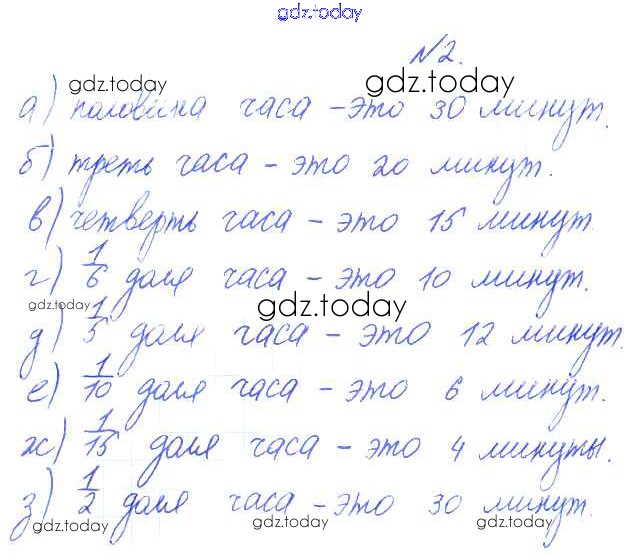 gdz.today
№2.
gdz.today gdz.today
а) половина часа – это 30 минут.
б) треть часа – это 20 минут.
в) четверть часа – это 15 минут
г) 1/6 доля часа – это 10 минут.
gdz.today gdz.today
д) 1/5 доля часа – это 12 минут.
е) 1/10 доля часа – это 6 минут.
ж) 1/15 доля часа – это 4 минуты.
з) 1/2 доля часа – это 30 минут.
gdz.today gdz.today gdz.today